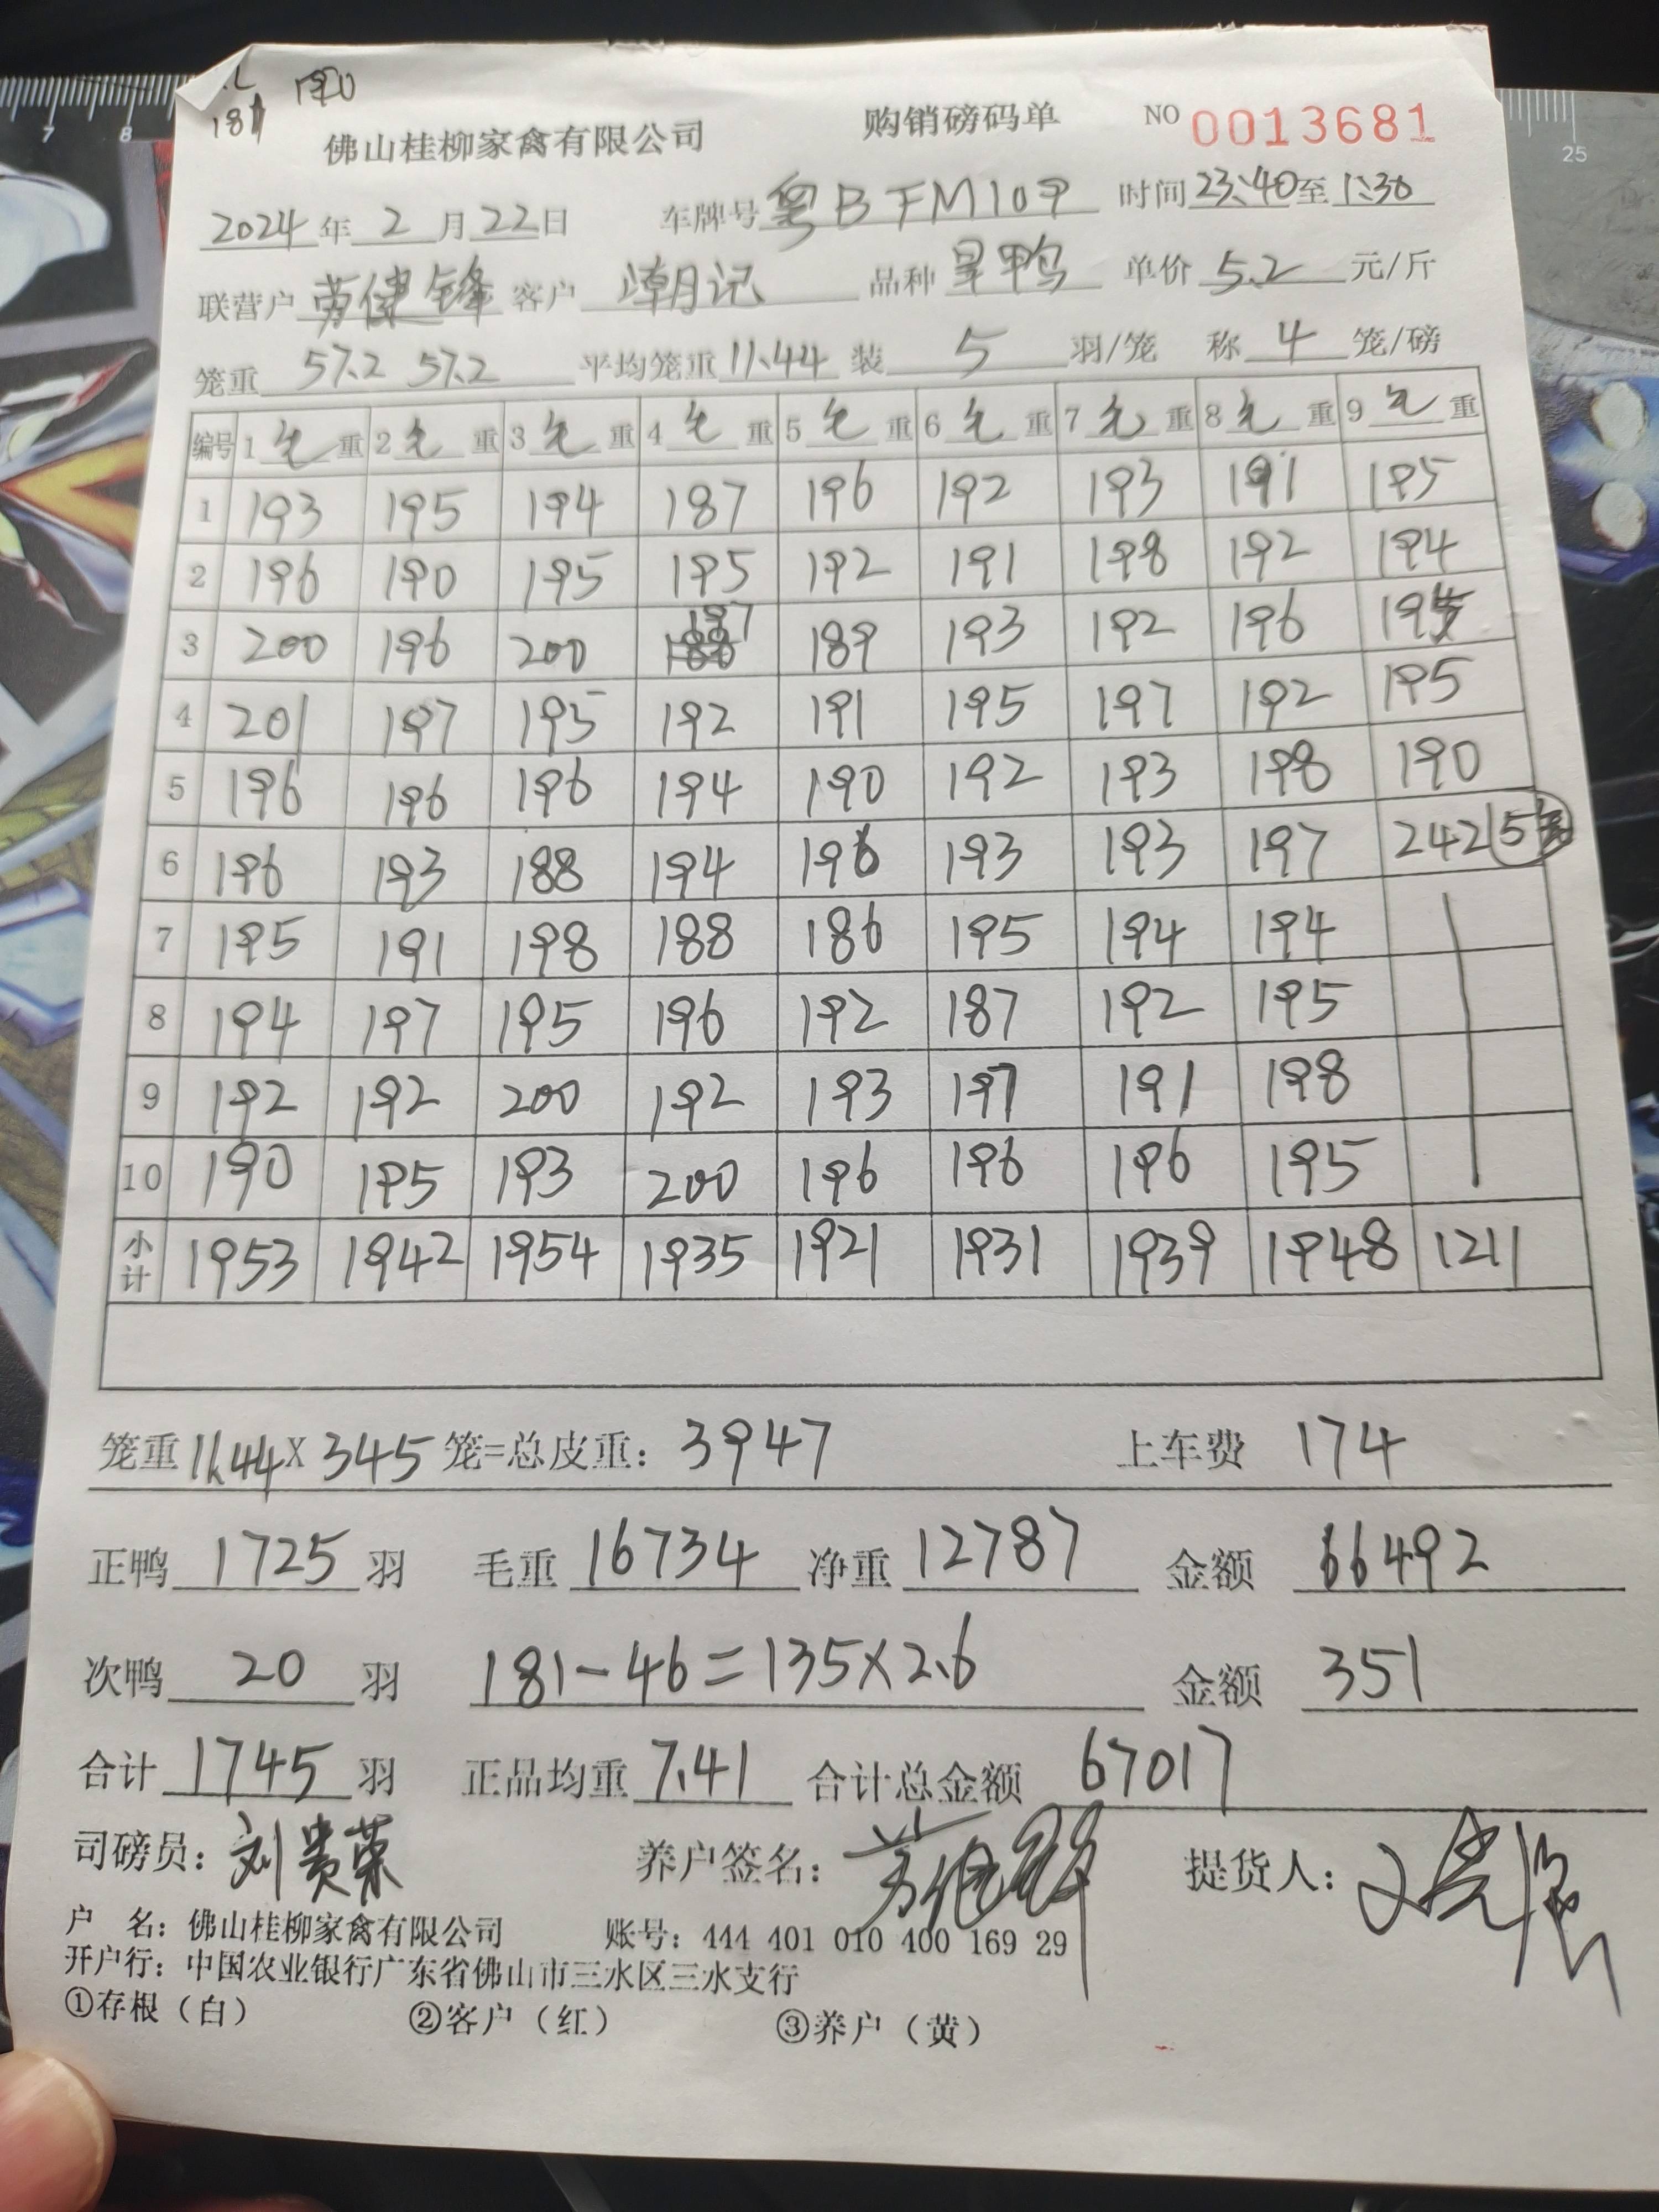 190
181
佛山桂柳家禽有限公司 购销磅码单 NO 0013681
2024年2月22日 车牌号粤BFM109 时间23:40至1:30
联营户劳健锋 客户 潮记 品种 旱鸭 单价 5.2 元/斤
笼重 57.2 57.2 平均笼重 11.44 装 5 羽/笼 称 4 笼/磅
编号 1毛重 2毛重 3毛重 4毛重 5毛重 6毛重 7毛重 8毛重 9毛重
1 193 195 194 187 196 192 193 191 195
2 196 190 195 195 192 191 198 192 194
3 200 196 200 197 189 193 192 196 195
4 201 197 195 192 191 195 197 192 195
5 196 196 196 194 190 192 193 198 190
6 196 193 188 194 196 193 193 197 242 5
7 195 191 198 188 186 195 194 194
8 194 197 195 196 192 187 192 195
9 192 192 200 192 193 197 191 198
10 190 195 193 200 196 196 196 195
小计 1953 1942 1954 1935 1921 1931 1939 1948 1211
笼重11.44×345笼=总皮重：3947 上车费 174
正鸭 1725 羽 毛重 16734 净重 12787 金额 66492
次鸭 20 羽 181-46=135×2.6 金额 351
合计 1745 羽 正品均重 7.41 合计总金额 67017
司磅员：刘贵荣 养户签名： 提货人：
户 名：佛山桂柳家禽有限公司 账号：444 401 010 400 169 29
开户行：中国农业银行广东省佛山市三水区三水支行
①存根（白） ②客户（红） ③养户（黄）